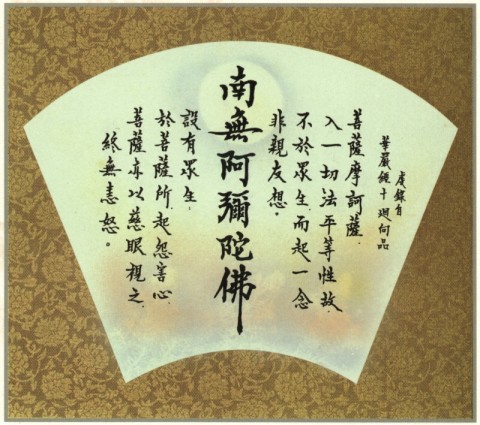 虔錄自
華嚴經十迴向品
菩薩摩訶薩，
入一切法平等性故，
不於眾生，而起一念
非親友想。
南無阿彌陀佛
設有眾生，
於菩薩所，起怨害心，
菩薩亦以慈眼視之，
終無恚怒。